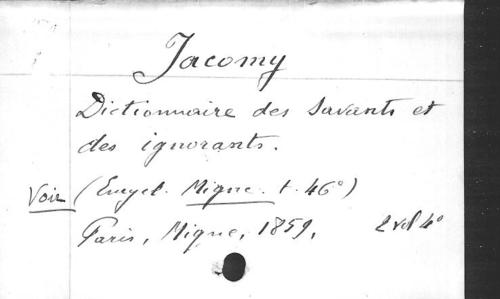 Jacomy
Dictionnaire des Savants et
des ignorants.
Voir (Encycl. Migne. t. 46°)
Paris, Migne, 1859, 2 vol 4°